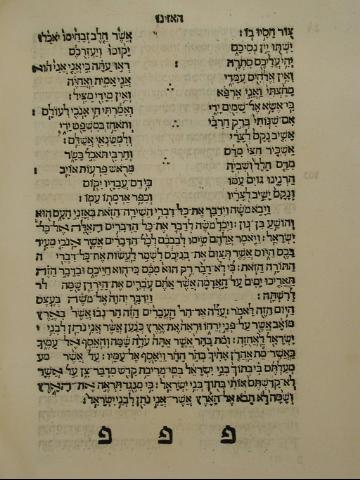 האזינו
צור חסיו בו : אשר חלב זבחימו יאכלו
ישתו יין נסיכם יקומו ויעזרכם
יהי עליכם סתרה ראו עתה כי אני אני הוא
ואין אלהים עמדי אני אמית ואחיה
מחצתי ואני ארפא ואין מידי מציל :
כי אשא אל שמים ידי ואמרתי חי אנכי לעולם :
אם שנותי ברק חרבי ותאחז במשפט ידי
אשיב נקם לצרי ולמשנאי אשלם :
אשכיר חצי מדם וחרבי תאכל בשר
מדם חלל ושביה מראש פרעות אויב
הרנינו גוים עמו כי דם עבדיו יקום
ונקם ישיב לצריו וכפר אדמתו עמו :
ויבא משה וידבר את כל דברי השירה הזאת באזני העם הוא
והושע בן נון : ויכל משה לדבר את כל הדברים האלה אל כל
ישראל : ויאמר אלהם שימו לבבכם לכל הדברים אשר אנכי מעיד
בכם היום אשר תצום את בניכם לשמר לעשות את כל דברי
התורה הזאת : כי לא דבר רק הוא מכם כי הוא חייכם ובדבר הזה
תאריכו ימים על האדמה אשר אתם עברים את הירדן שמה
לרשתה : וידבר יהוה אל משה בעצם
היום הזה לאמר : עלה אל הר העברים הזה הר נבו אשר בארץ
מואב אשר על פני ירחו וראה את ארץ כנען אשר אני נתן לבני
ישראל לאחזה : ומת בהר אשר אתה עלה שמה והאסף אל עמיך
כאשר מת אהרן אחיך בהר ההר ויאסף אל עמיו : על אשר
מעלתם בי בתוך בני ישראל במי מריבת קדש מדבר צן על אשר
לא קדשתם אותי בתוך בני ישראל : כי מנגד תראה את הארץ
ושמה לא תבא אל הארץ אשר אני נתן לבני ישראל :
פ פ פ